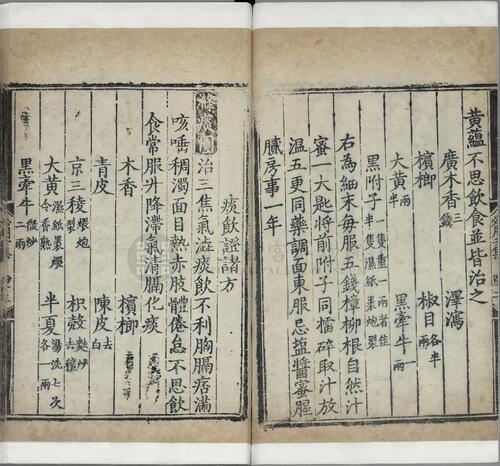 黃蘊不思飲食並皆治之
廣木香三錢 澤瀉
檳榔 椒目各半兩
大黃半兩 黑牽牛一兩
黑附子半隻重一兩者佳半隻濕紙裹炮裂
右為細末每服五錢樟柳根自然汁
蜜一大匙將前附子同擂碎取汁放
溫五更同藥調面東服忌鹽醬蜜腥
膩房事一年
痰飲證諸方
治三焦氣澁痰飲不利胸膈痞滿
咳唾稠濁面目熱赤肢體倦怠不思飲
食常服升降滯氣清膈化痰
木香 檳榔
青皮 陳皮去白
京三稜煨炮裂 枳殼麩炒去穰
大黃濕紙裹煨令香熟 半夏湯洗七次各一兩
黑牽牛微炒二兩